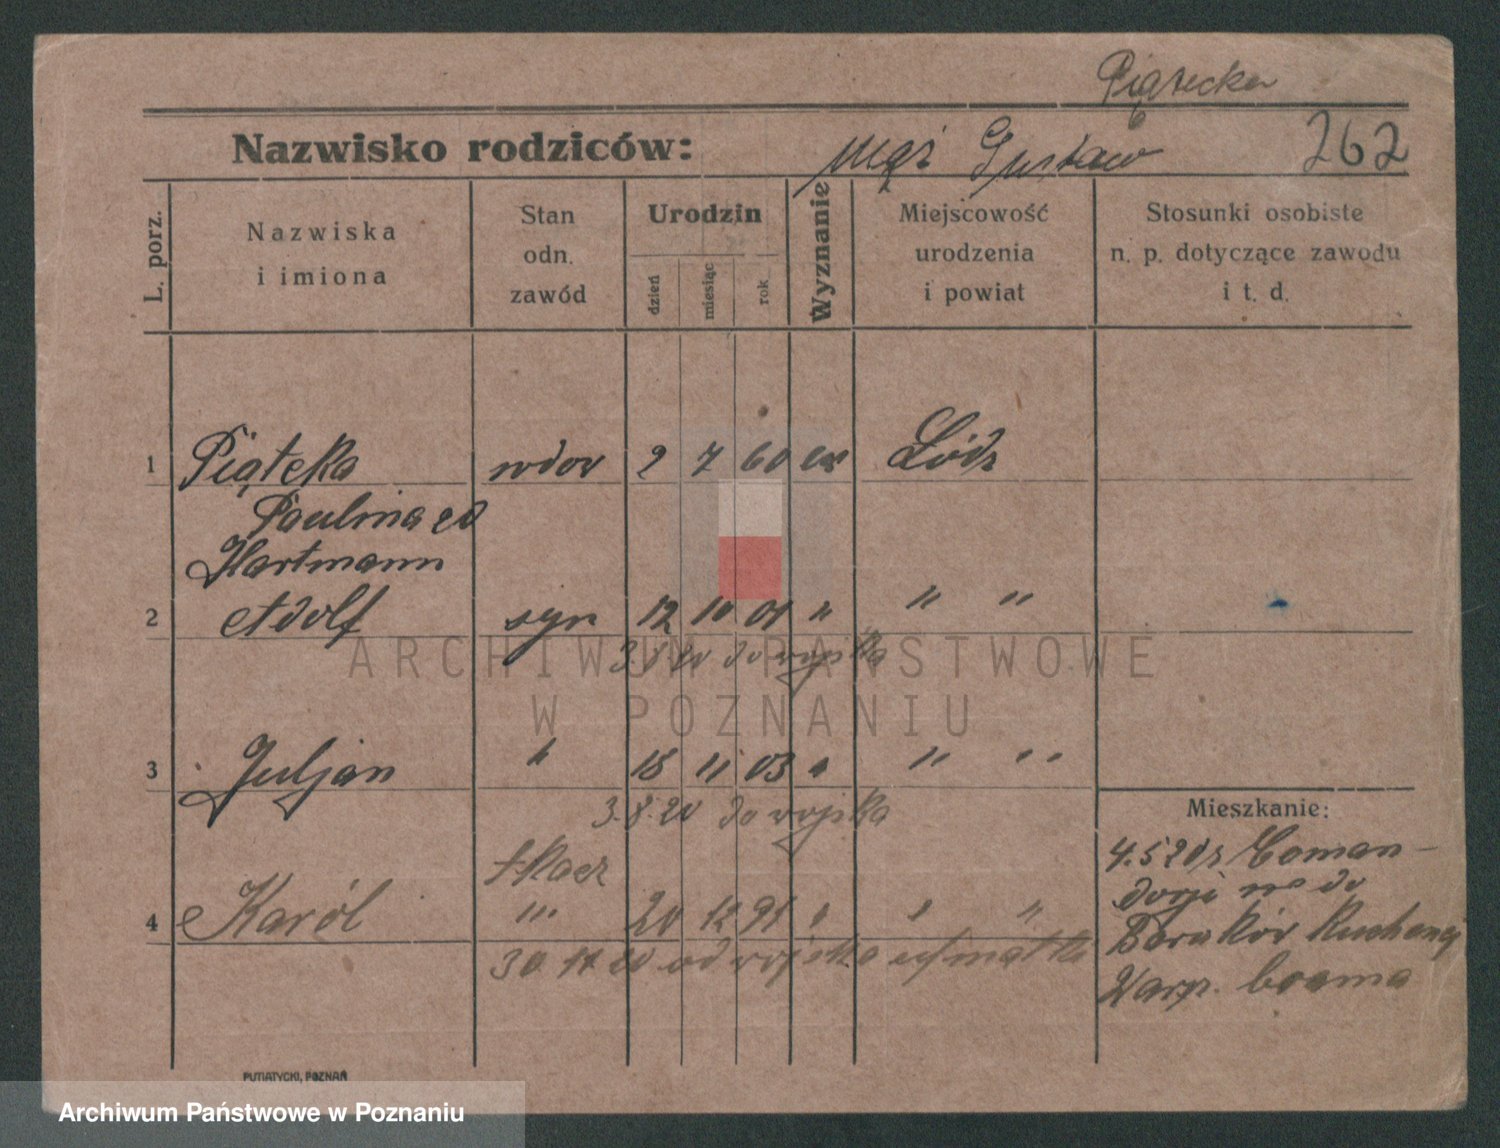 Piątecka
Nazwisko rodziców: mąż Gustaw 262
L. porz.
Nazwiska
i imiona
Stan
odn.
zawód
Urodzin
dzień
miesiąc
rok
Wyznanie
Miejscowość
urodzenia
i powiat
Stosunki osobiste
n. p. dotyczące zawodu
i t. d.
1 Piąteka wdov 2 7 60 Łódz
Paulina
Hartmann
2 Adolf syn 12 10 01 " " "
3.8.20 do wojska
3 Juljan " 18 11 03 " " "
3.8.20 do wojska
Mieszkanie:
tkacz
4 Karól " 20 12 91 " " "
30 11 20 od wojska
4.5 20
do
Barakóv
PUTIATYCKI, POZNAŃ
ARCHIWUM PAŃSTWOWE
W POZNANIU
Archiwum Państwowe w Poznaniu